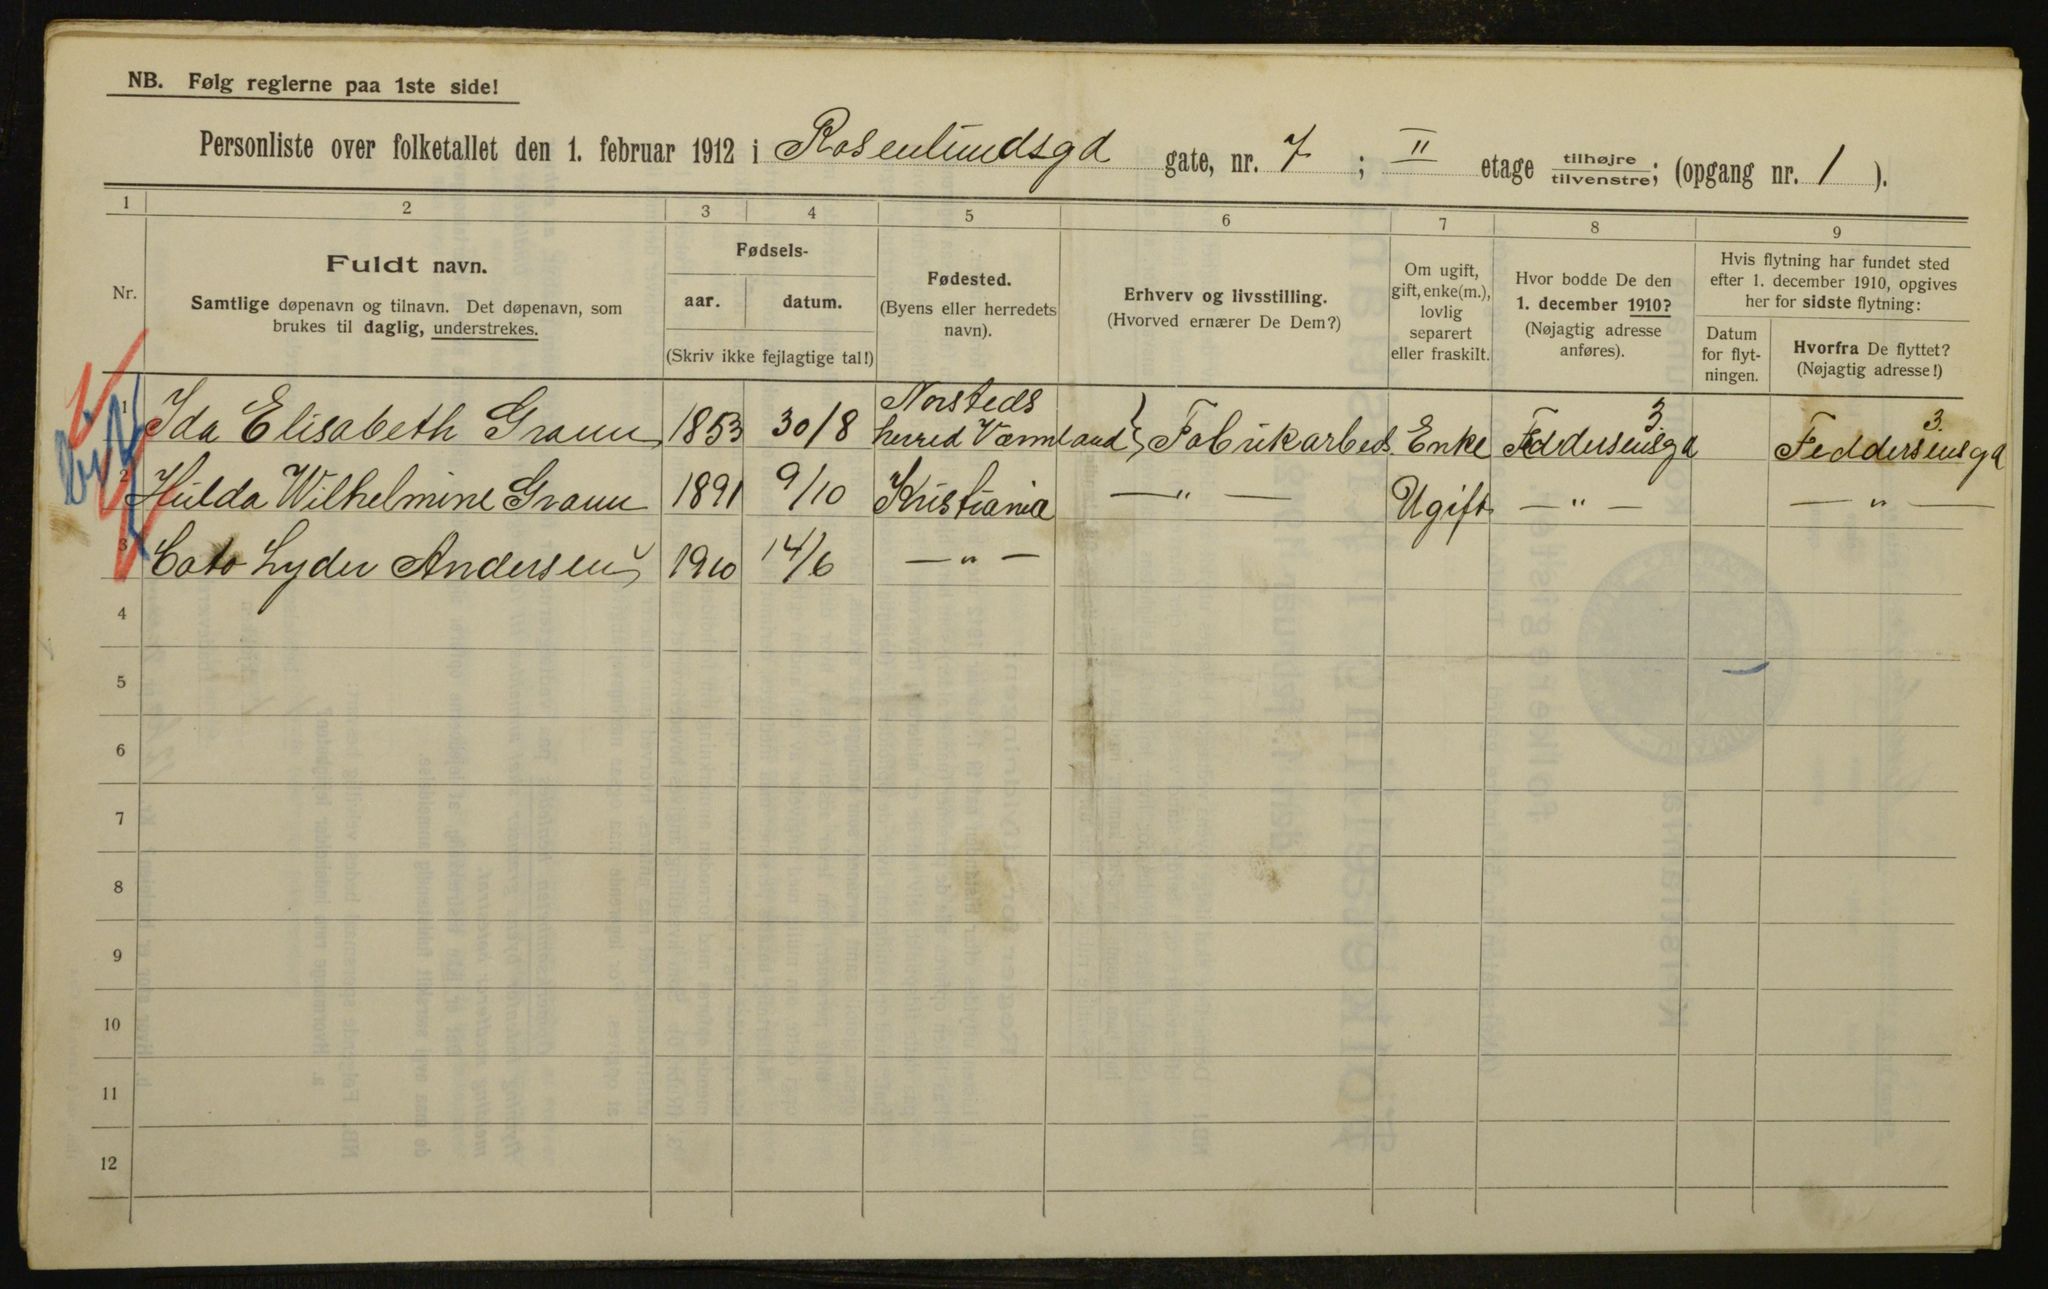 NB. Følg reglerne paa 1ste side!
Personliste over folketallet den 1. februar 1912 i Rosenlundsgd gate, nr. 7 ; II etage tilhøjre tilvenstre; (opgang nr. 1 ).
1 2 3 4 5 6 7 8 9
Nr.
Fuldt navn.
Samtlige døpenavn og tilnavn. Det døpenavn, som
brukes til daglig, understrekes.
Fødsels-
aar. datum.
(Skriv ikke fejlagtige tal!)
Fødested.
(Byens eller herredets
navn).
Erhverv og livsstilling.
(Hvorved ernærer De Dem?)
Om ugift,
gift, enke(m.),
lovlig
separert
eller fraskilt.
Hvor bodde De den
1. december 1910?
(Nøjagtig adresse
anføres).
Hvis flytning har fundet sted
efter 1. december 1910, opgives
her for sidste flytning:
Datum
for flyt-
ningen.
Hvorfra De flyttet?
(Nøjagtig adresse!)
1 Ida Elisabeth Graun 1853 30/8 Norsteds herred Värmland Fabrikarbeds Enke Feddersensgd 3. Feddersensgd 3.
2 Hulda Wilhelmine Graun 1891 9/10 Kristiania — " — Ugift — " — — " —
3 Cato Lyder Andersen 1910 14/6 — " —
4
5
6
7
8
9
10
11
12